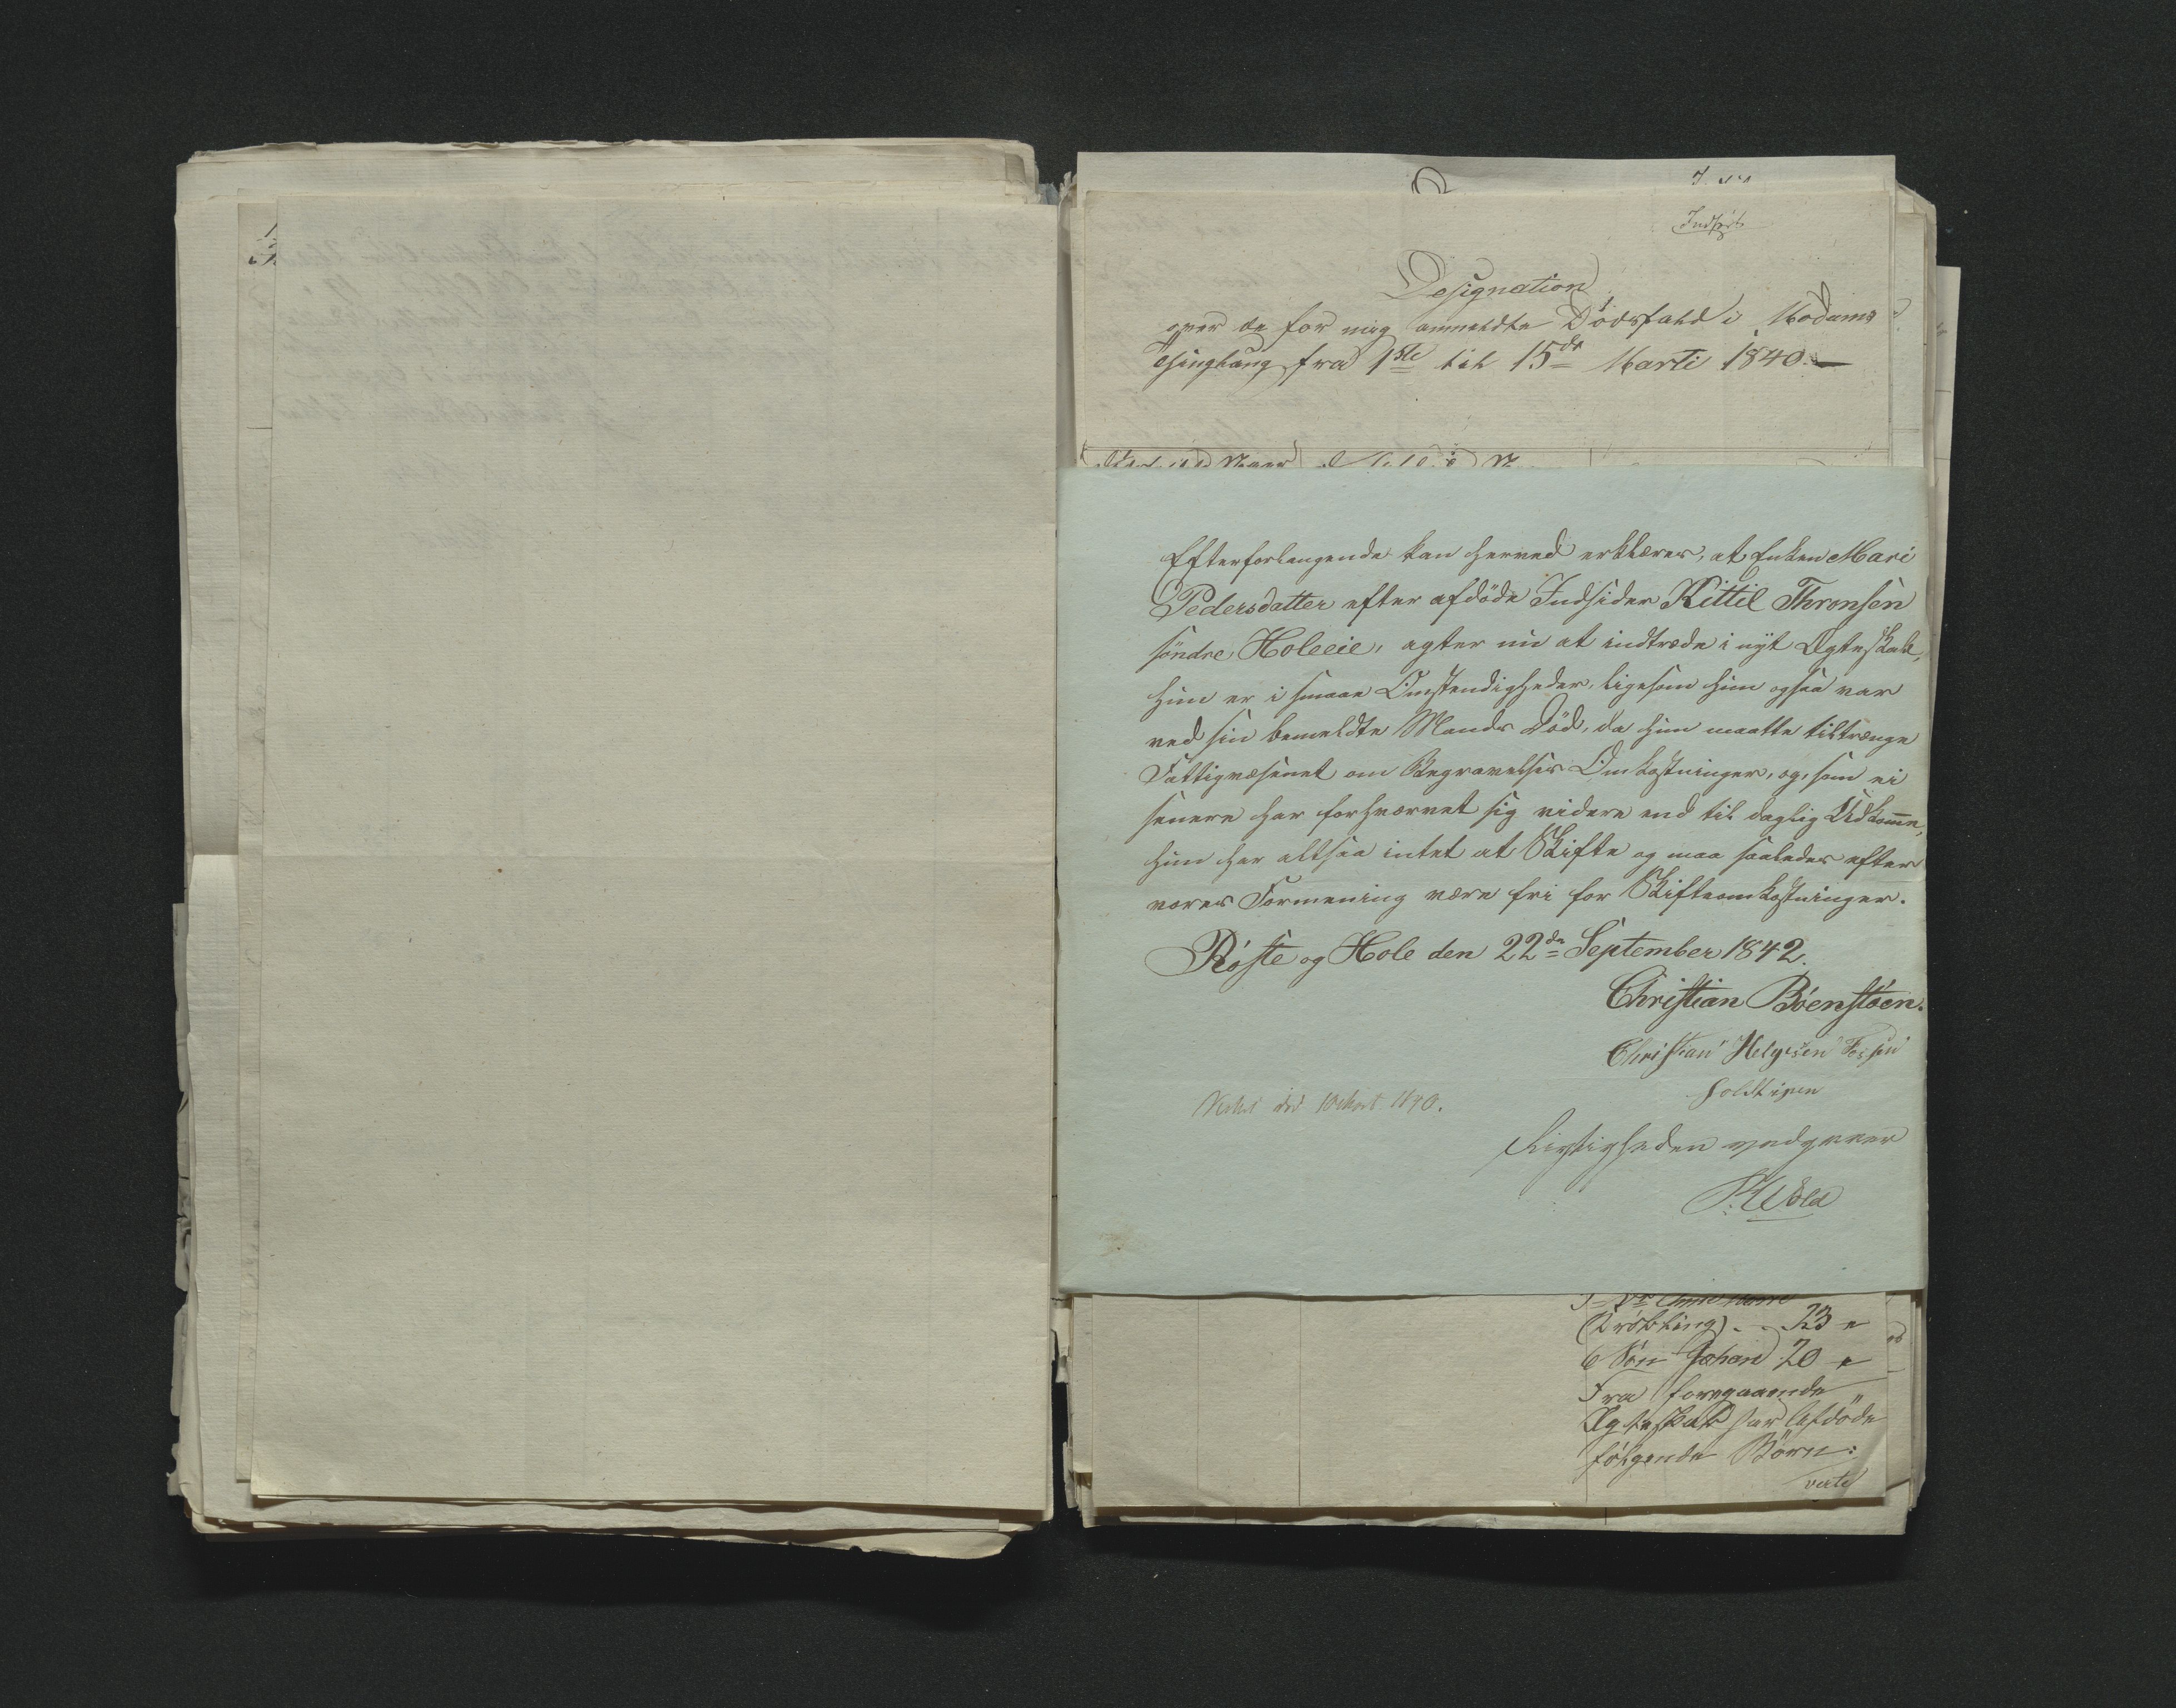 Indført
Designation
over de for mig anmeldte Dødsfald i Modums
Thinglaug fra 1ste til 15de Marti 1840. —
Efterforlangende kan herved erklæres, at Enken Mari
Pedersdatter efter afdøde Indsider Kittil Thronsen
søndre Holeeie, agter nu at indtræde i nyt Ægteskab,
hun er i smaae Omstendigheder, ligesom hun ogsaa var
ved sin bemeldte Mands Død, da hun maatte tiltrænge
Fattigvæsenet om Begravelses Omkostninger, og, som ei
senere har forhværvet sig videre end til daglig Udkomme,
hun har altsaa intet at Skifte og maa saaledes efter
vores Formening være fri for Skifteomkostninger.
Røste og Hole den 22de September 1842.
Christian Bøenstøen.
Christian Helgesen
død 10 Mart 1840.
Rigtigheden vedgaaer
P. Wold
(Drøbling) . . 23 "
6 Søn Johan 20 "
Fra foregaaende
Ægteskab har Afdøde
følgende Børn:
verte